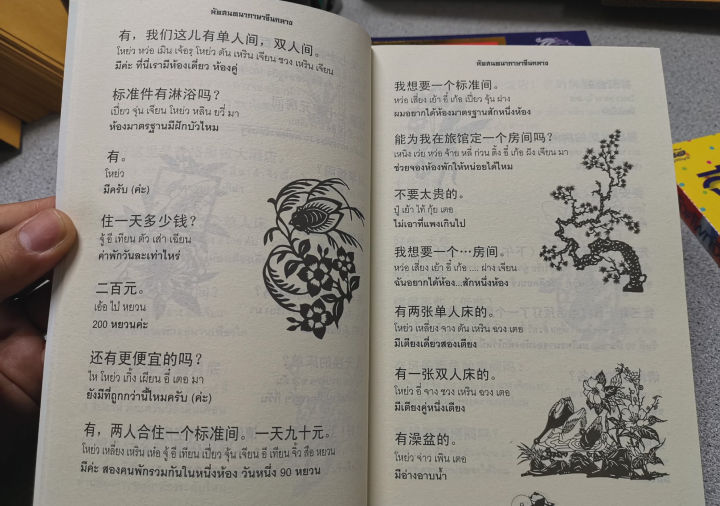 หัดสนทนาภาษาจีนกลาง
有，我们这儿有单人间，双人间。
โหย่ว หว่อ เมิน เจ้อรฺ โหย่ว ตัน เหริน เจียน ซวง เหริน เจียน
มีค่ะ ที่นี่เรามีห้องเดี่ยว ห้องคู่
标准件有淋浴吗？
เปียว จุ่น เจียน โหย่ว หลิน ยวี่ มา
ห้องมาตรฐานมีฝักบัวไหม
有。
โหย่ว
มีครับ (ค่ะ)
住一天多少钱？
จู้ อี เทียน ตัว เส่า เฉียน
ค่าพักวันละเท่าไหร่
二百元。
เอ้อ ไป่ หยวน
200 หยวนค่ะ
还有更便宜的吗？
ไห โหย่ว เกิ้ง เผียน อี๋ เตอ มา
ยังมีที่ถูกกว่านี้ไหมครับ (ค่ะ)
有，两人合住一个标准间。一天九十元。
โหย่ว เหลี่ยง เหริน เห่อ จู้ อี เก้อ เปียว จุ่น เจียน อี เทียน จิ่ว สือ หยวน
มีค่ะ สองคนพักรวมกันในหนึ่งห้อง วันหนึ่ง 90 หยวน
หัดสนทนาภาษาจีนกลาง
我想要一个标准间。
หว่อ เสี่ยง เย้า อี๋ เก้อ เปียว จุ่น ฝาง
ผมอยากได้ห้องมาตรฐานสักหนึ่งห้อง
能为我在旅馆定一个房间吗？
เหนิง เว่ย หว่อ จ้าย หลี่ ก่วน ติ้ง อี๋ เก้อ ฝัง เจียน มา
ช่วยจองห้องพักให้หน่อยได้ไหม
不要太贵的。
ปู๋ เย้า ไท้ กุ้ย เตอ
ไม่เอาที่แพงเกินไป
我想要一个…房间。
หว่อ เสี่ยง เย้า อี๋ เก้อ .... ฝาง เจียน
ฉันอยากได้ห้อง...สักหนึ่งห้อง
有两张单人床的。
โหย่ว เหลี่ยง จาง ตัน เหริน ฉวง เตอ
มีเตียงเดี่ยวสองเตียง
有一张双人床的。
โหย่ว อี้ จาง ซวง เหริน ฉวง เตอ
มีเตียงคู่หนึ่งเตียง
有澡盆的。
โหย่ว จ่าว เพิน เตอ
มีอ่างอาบน้ำ